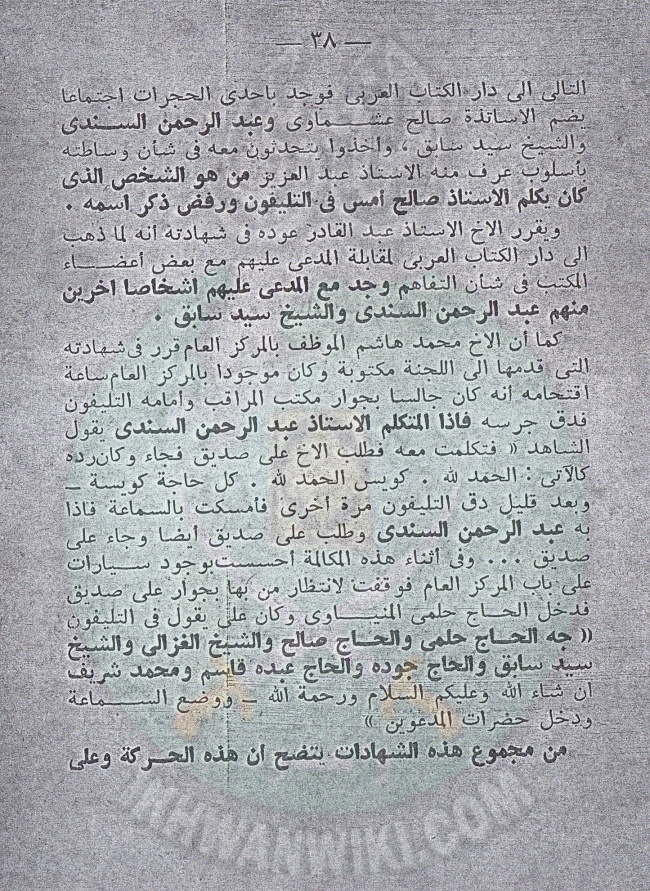 — ٣٨ —
التالى الى دار الكتاب العربى فوجد باحدى الحجرات اجتماعا
يضم الاساتذة صالح عشماوى وعبد الرحمن السندى
والشيخ سيد سابق ، وأخذوا يتحدثون معه فى شأن وساطته
بأسلوب عرف منه الاستاذ عبد العزيز من هو الشخص الذى
كان يكلم الاستاذ صالح أمس فى التليفون ورفض ذكر اسمه .
ويقرر الاخ الاستاذ عبد القادر عوده فى شهادته أنه لما ذهب
الى دار الكتاب العربى لمقابلة المدعى عليهم مع بعض أعضاء
المكتب فى شأن التفاهم وجد مع المدعى عليهم اشخاصا آخرين
منهم عبد الرحمن السندى والشيخ سيد سابق .
كما أن الاخ محمد هاشم الموظف بالمركز العام قرر فى شهادته
التى قدمها الى اللجنة مكتوبة وكان موجودا بالمركز العام ساعة
اقتحامه أنه كان جالسا بجوار مكتب المراقب وأمامه التليفون
فدق جرسه فاذا المتكلم الاستاذ عبد الرحمن السندى يقول
الشاهد « فتكلمت معه فطلب الاخ على صديق فجاء وكان رده
كالآتى : الحمد لله . كويس الحمد لله . كل حاجة كويسة ــ
وبعد قليل دق التليفون مرة أخرى فأمسكت بالسماعة فاذا
به عبد الرحمن السندى وطلب على صديق أيضا وجاء على
صديق ... وفى أثناء هذه المكالمة أحسست بوجود سيارات
على باب المركز العام فوقفت لانتظار من بها بجوار على صديق
فدخل الحاج حلمى المنياوى وكان على يقول فى التليفون
(( جه الحاج حلمى والحاج صالح والشيخ الغزالى والشيخ
سيد سابق والحاج جوده والحاج عبده قاسم ومحمد شريف
ان شاء الله وعليكم السلام ورحمة الله ــ ووضع السماعة
ودخل حضرات المدعوين »
من مجموع هذه الشهادات يتضح ان هذه الحركة وعلى
IKHWANWIKI.COM